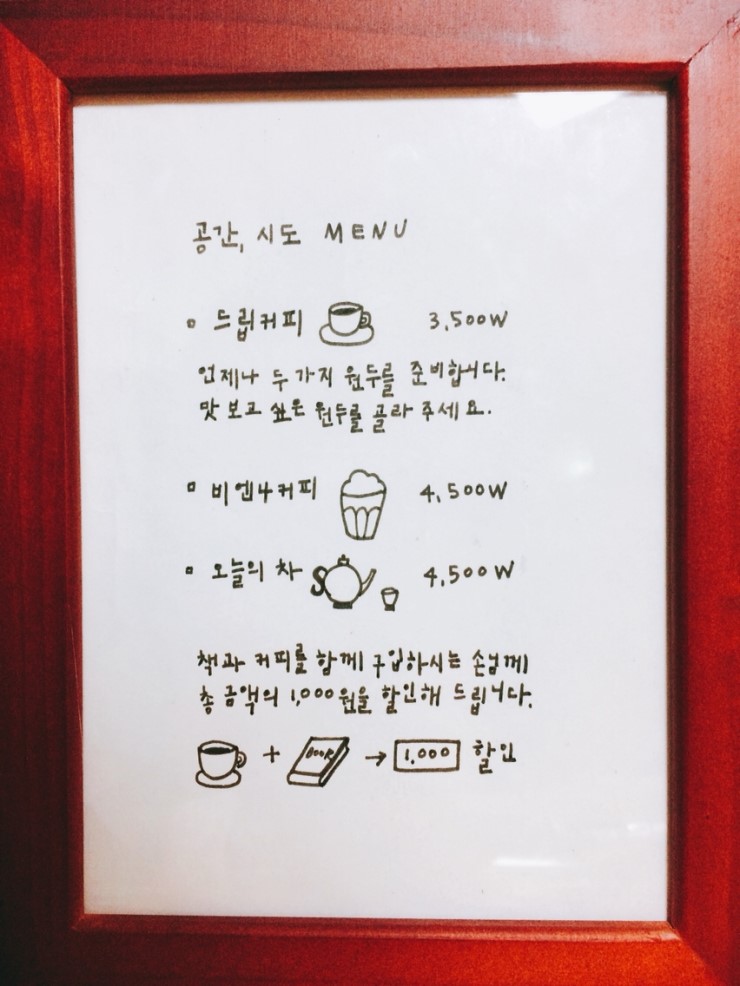 공간, 시도 MENU
드립커피 3,500W
언제나 두 가지 원두를 준비합니다.
맛 보고 싶은 원두를 골라 주세요.
비엔나커피 4,500W
오늘의 차 4,500W
책과 커피를 함께 구입하시는 손님께
총 금액의 1,000원을 할인해 드립니다.
+ BOOK → 1,000 할인